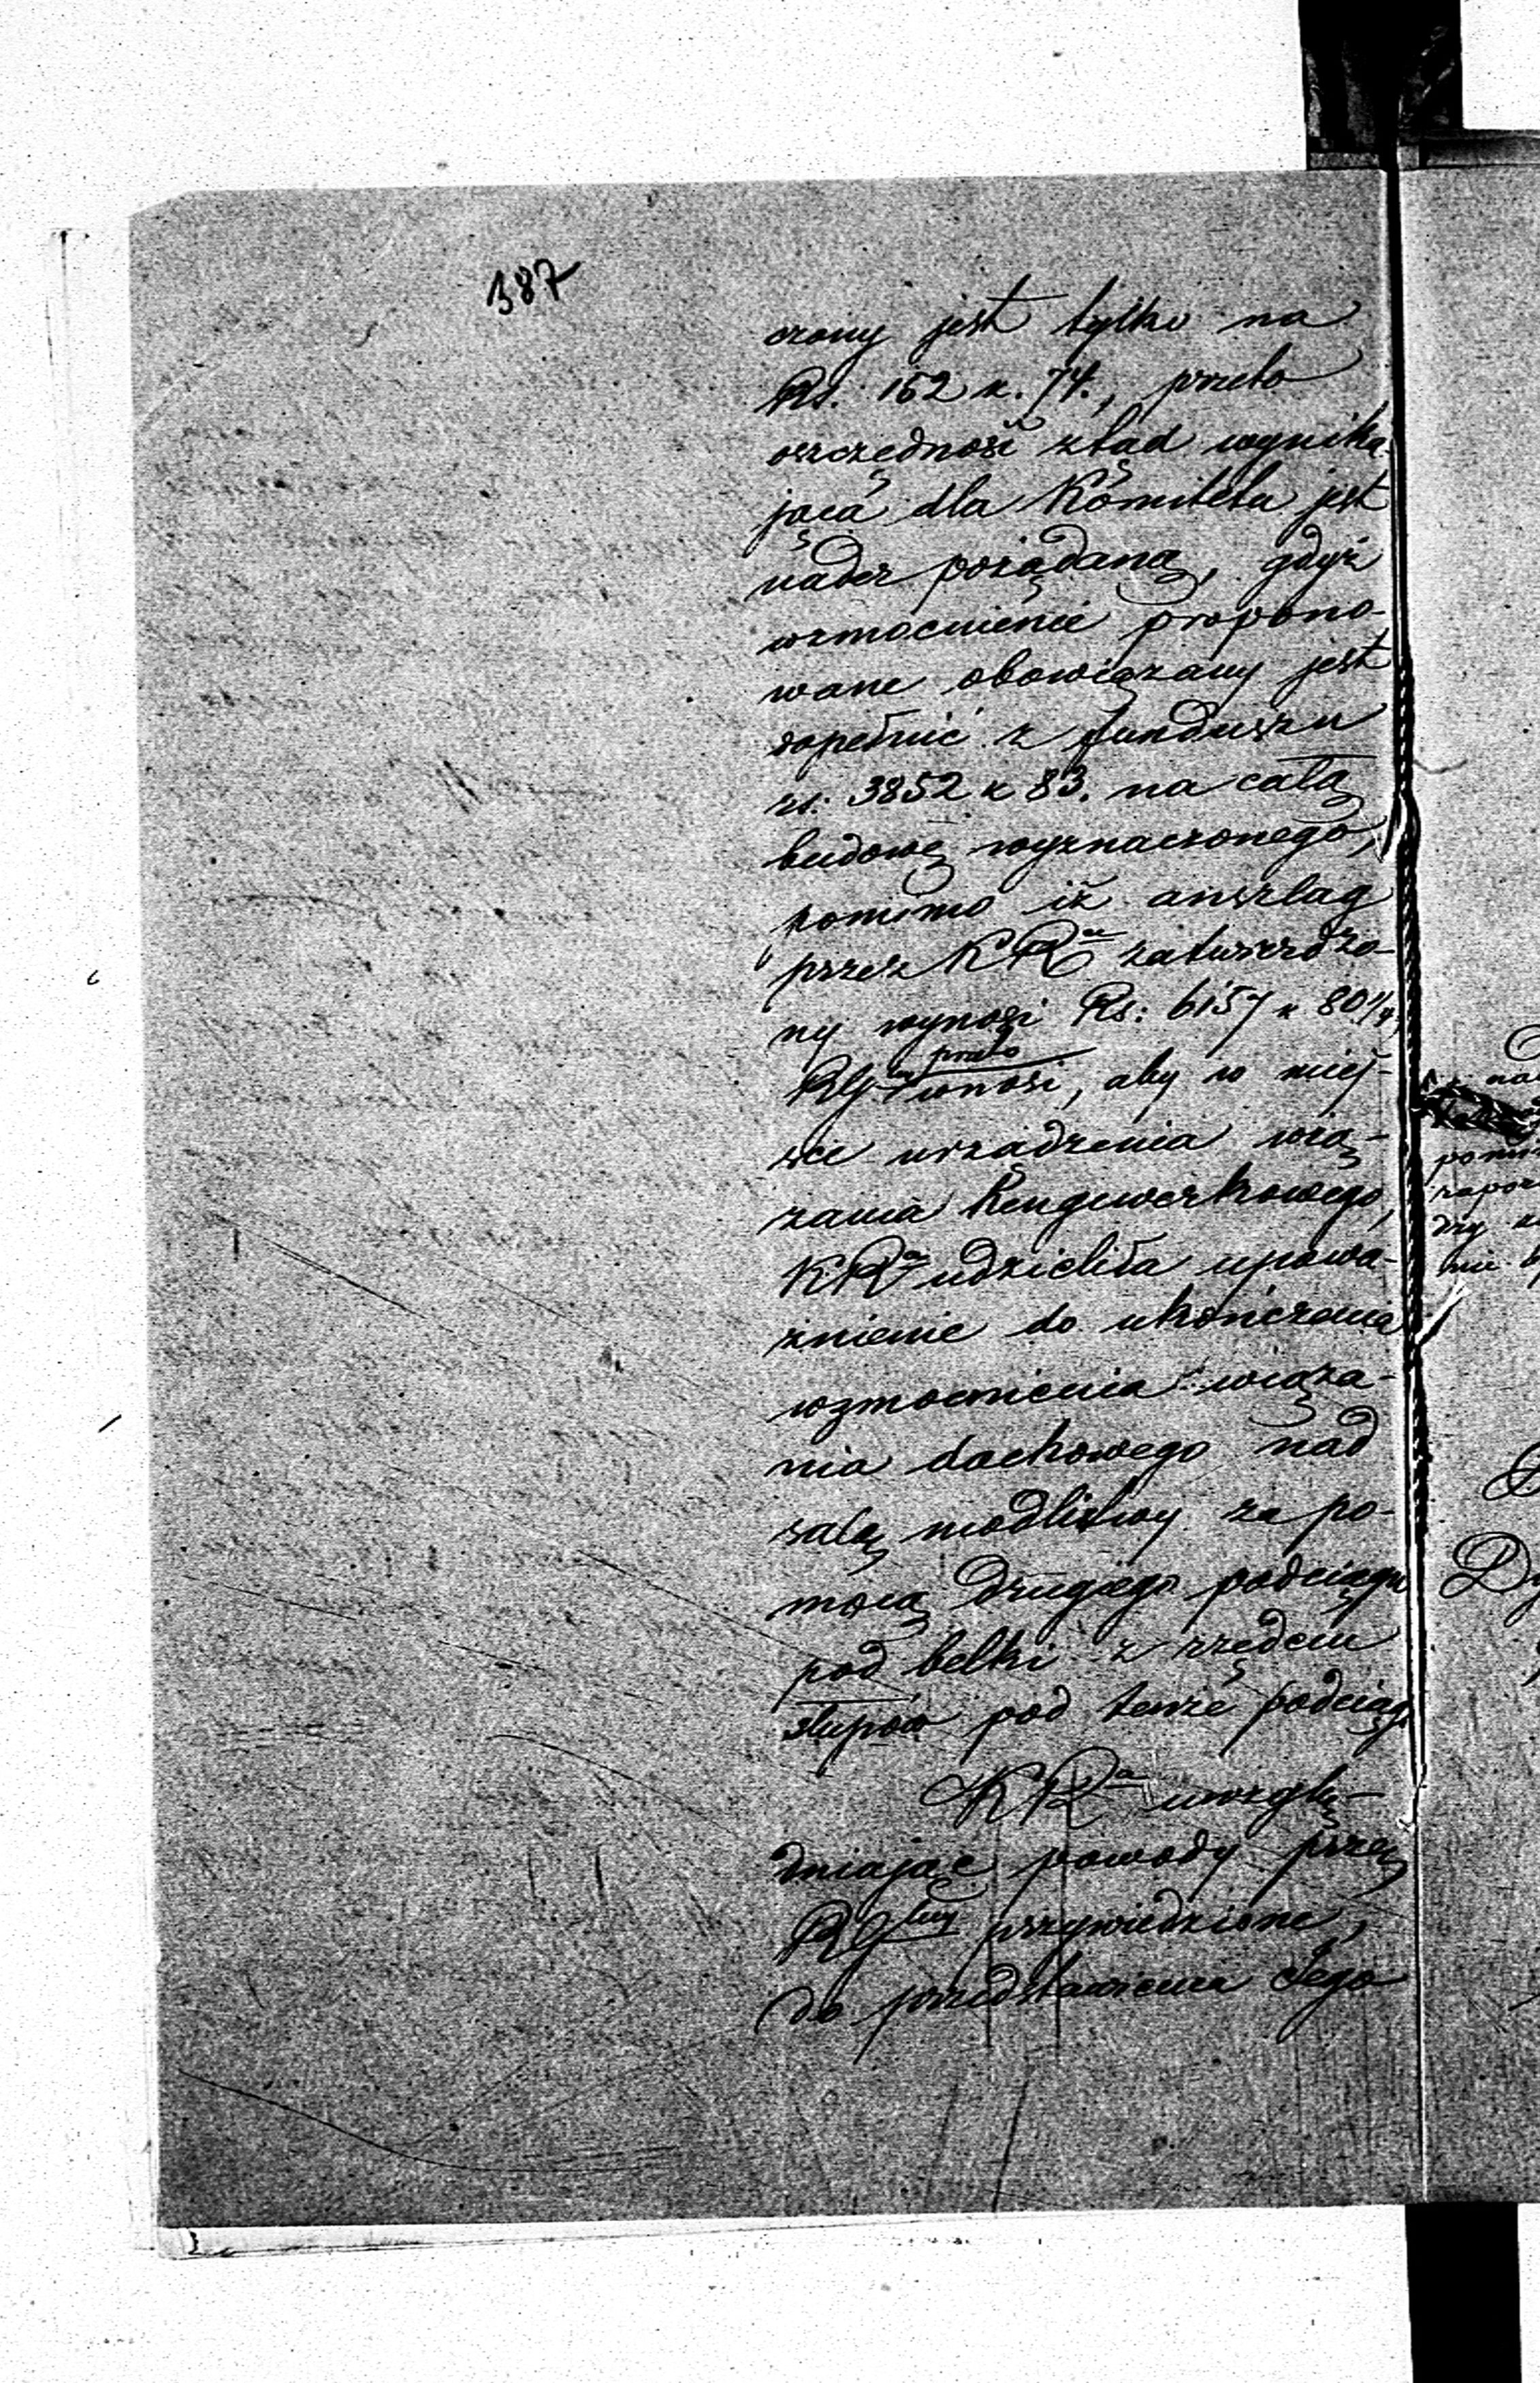 387
czony jest tylko na
Rs. 152 k. 74., przeto
oszczędność ztąd wynika-
jąca dla Komitetu jest
nader pożądaną, gdyż
wzmocnienie propono-
wane obowiązany jest
dopełnić z funduszu
rs: 3852 k 83. na całą
budowę wyznaczonego,
pomimo iż anszlag
przez KRę zatwierdzo-
ny wynosi Rs: 6157 k 80 1/4,
przeto
RG wnosi, aby w miej-
sce urządzenia wią-
zania Hengewerkowego,
KRa udzieliła upowa-
żnienie do ukończenia
wzmocnienia wiąza-
nia dachowego nad
salą modlitwy za po-
mocą drugiego podciągu
pod belki z rzędem
słupów pod tenże podciąg.
KRa uwzglę-
dniając powody przez
RGlny przywiedzione,
do przedstawienia Jego